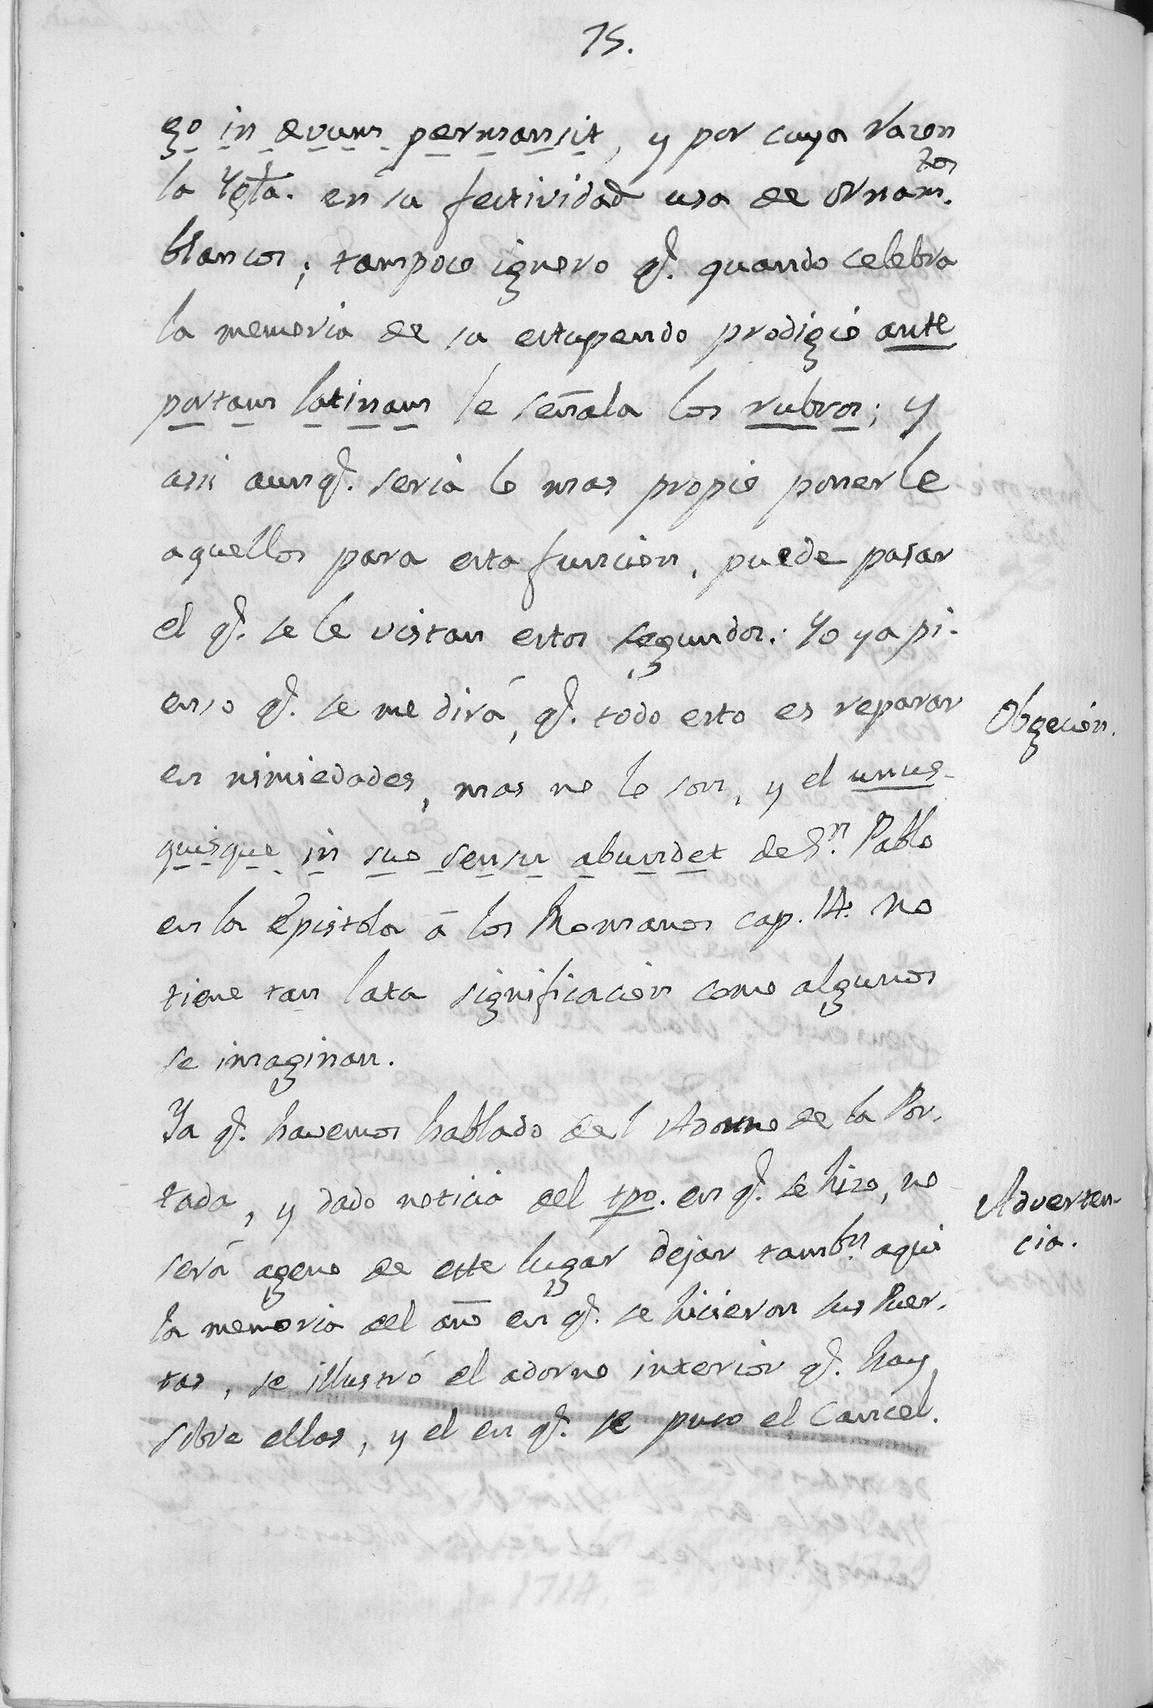 75.
go in evum permansit, y por cuya razon
la Ygla. en su festividad usa de ornamtos.
blancos; tampoco ignoro q. quando celebra
la memoria de su estupendo prodigio ante
portam latinam le señala los rubros; y
asi aunq. seria lo mas propio ponerle
aquellos para esta funcion, puede pasar
el q. se le vistan estos segundos: Yo ya pi-
enso q. se me dirá, q. todo esto es reparar
en nimiedades, mas no lo son, y el unus-
quisque in suo sensu abundet de Sn. Pablo
en la Epistola á los Romanos cap. 14. no
tiene tan lata significacion como algunos
se imaginan.
Ya q. havemos hablado del Adorno de la Por-
tada, y dado noticia del tpo. en q. se hizo, no
será ageno de este lugar dejar tambn. aqui
la memoria del año en q. se hicieron sus Puer-
tas, se illustró el adorno interior q. hay
sobre ellas, y el en q. se puso el Cancel.
Obgecion.
Adverten-
cia.